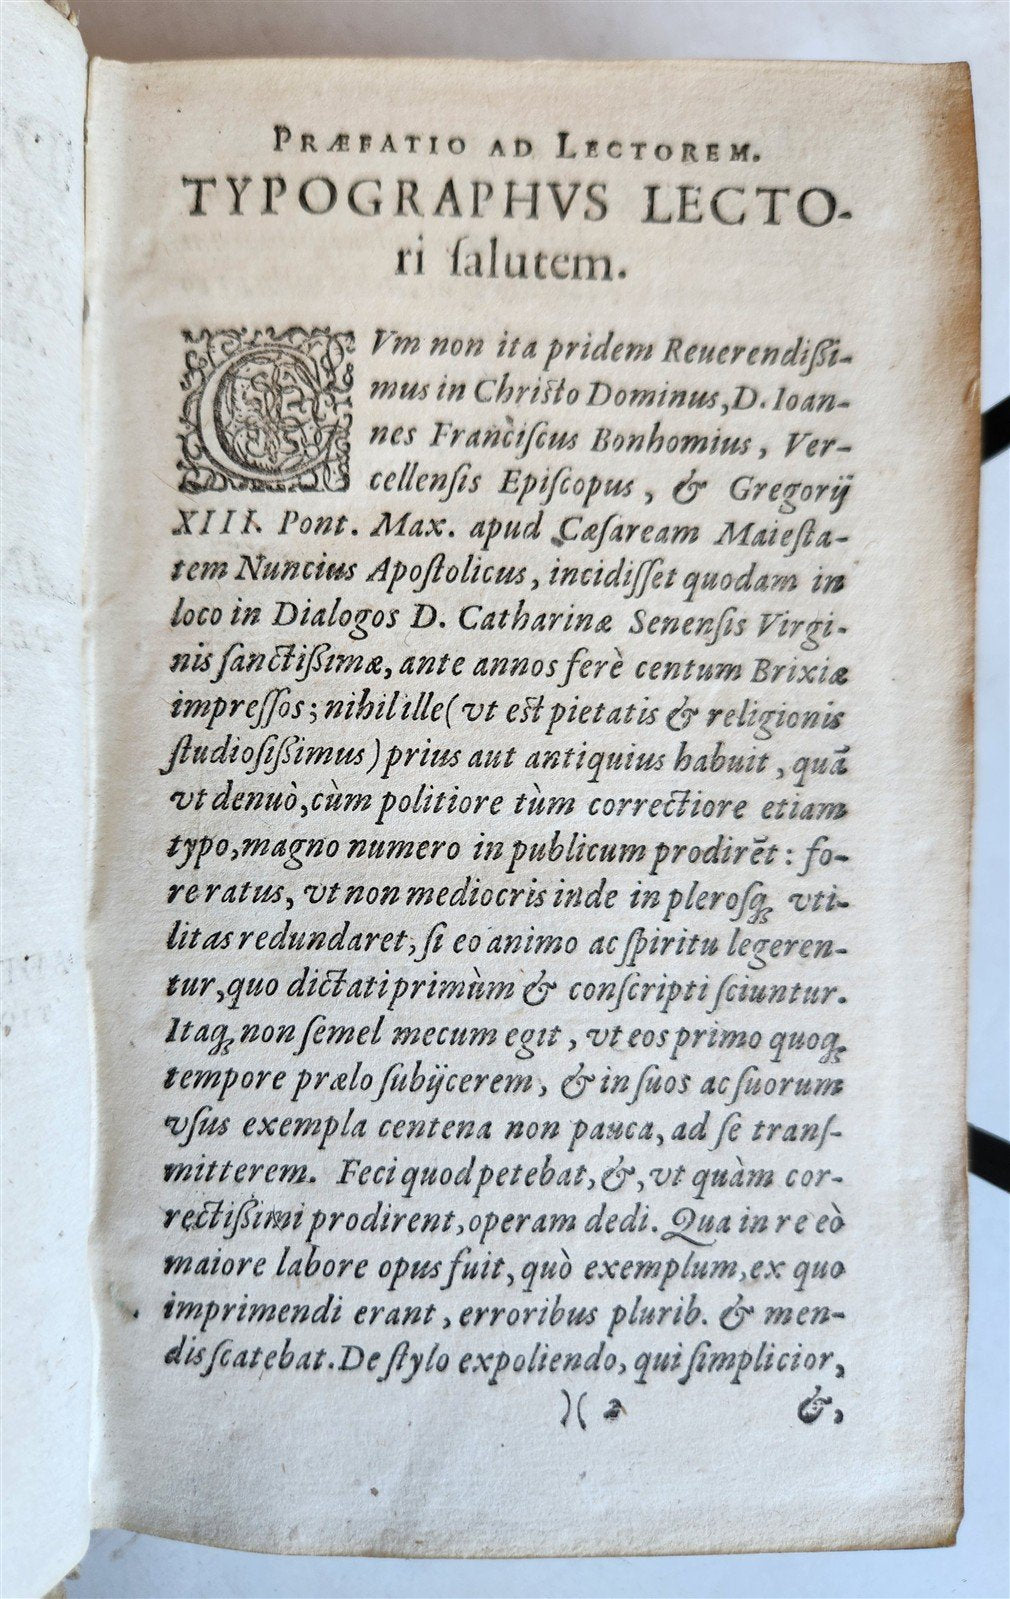 PRÆFATIO AD LECTOREM.
TYPOGRAPHVS LECTO-
ri ſalutem.
CVm non ita pridem Reuerendiſſi-
mus in Chriſto Dominus, D. Ioan-
nes Franciſcus Bonhomius, Ver-
cellenſis Epiſcopus, & Gregorij
XIII. Pont. Max. apud Cæſaream Maieſta-
tem Nuncius Apoſtolicus, incidiſſet quodam in
loco in Dialogos D. Catharinæ Senenſis Virgi-
nis ſanctiſſimæ, ante annos ferè centum Brixiæ
impreſſos; nihil ille (vt eſt pietatis & religionis
ſtudioſiſſimus) prius aut antiquius habuit, quã
vt denuò, cùm politiore tùm correctiore etiam
typo, magno numero in publicum prodirẽt: fo-
re ratus, vt non mediocris inde in pleroſq; vti-
litas redundaret, ſi eo animo ac ſpiritu legeren-
tur, quo dictati primùm & conſcripti ſciuntur.
Itaq; non ſemel mecum egit, vt eos primo quoq;
tempore prælo ſubijcerem, & in ſuos ac ſuorum
vſus exempla centena non pauca, ad ſe tranſ-
mitterem. Feci quod petebat, &, vt quàm cor-
rectiſſimi prodirent, operam dedi. Qua in re eò
maiore labore opus fuit, quò exemplum, ex quo
imprimendi erant, erroribus plurib. & men-
dis ſcatebat. De ſtylo expoliendo, qui ſimplicior,
)( 2 &,